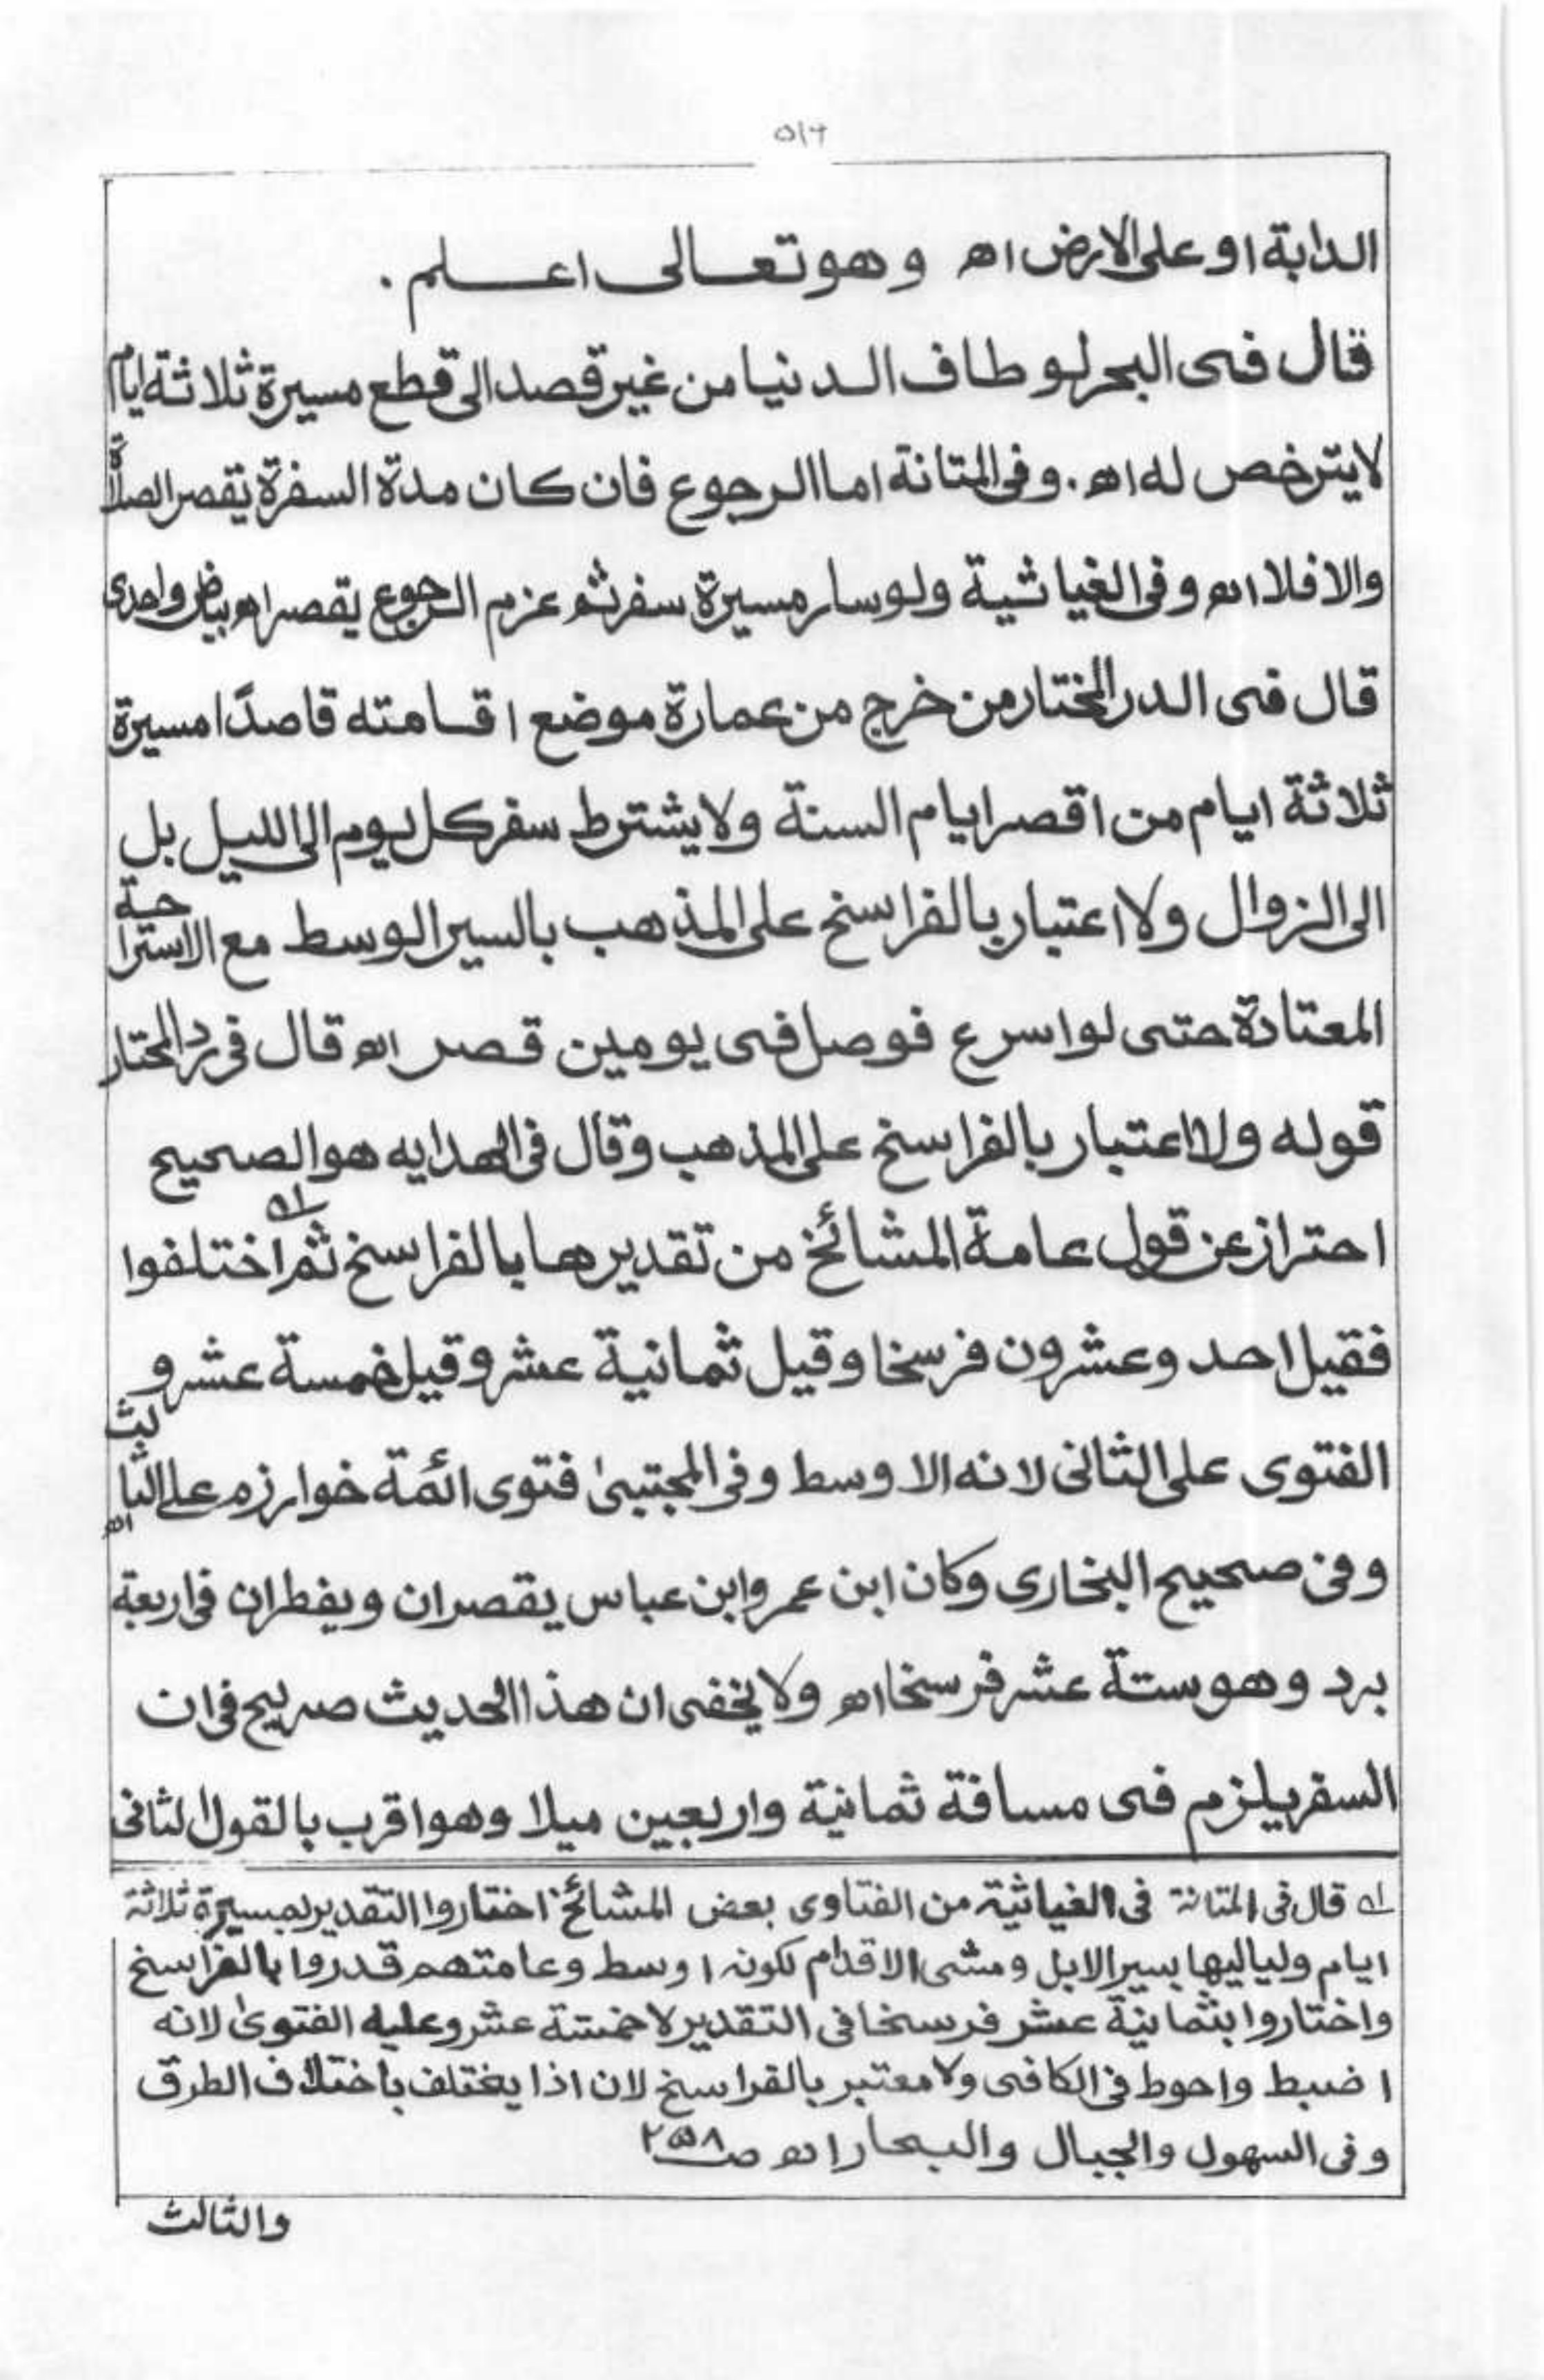 ٥١٦
الدابة او على الارض اھ وهو تعالى اعلم .
قال فى البحر لو طاف الدنيا من غير قصد الى قطع مسيرة ثلاثة ايام
لا يترخص له اھ. وفى المتانة اما الرجوع فان كان مدة السفرة يقصر الصلاة
والا فلا اھ وفى الغياثية ولو سار مسيرة سفر ثم عزم الرجوع يقصر اھ بياض واحدى
قال فى الدر المختار من خرج من عمارة موضع اقامته قاصدًا مسيرة
ثلاثة ايام من اقصر ايام السنة ولا يشترط سفر كل يوم الى الليل بل
الى الزوال ولا اعتبار بالفراسخ على المذهب بالسير الوسط مع الاستراحة
المعتادة حتى لو اسرع فوصل فى يومين قصر اھ قال فى رد المحتار
قوله ولا اعتبار بالفراسخ على المذهب وقال فى الهدايه هو الصحيح
احتراز عن قول عامة المشائخ من تقديرها بالفراسخ ثم اختلفوا
فقيل احد وعشرون فرسخا وقيل ثمانية عشر وقيل خمسة عشر و
الفتوى على الثانى لانه الاوسط وفى المجتبىٰ فتوى ائمة خوارزم على الثالث اھ
وفى صحيح البخارى وكان ابن عمر وابن عباس يقصران ويفطران فى اربعة
برد وهو ستة عشر فرسخا اھ ولا يخفى ان هذا الحديث صريح فى ان
السفر يلزم فى مسافة ثمانية واربعين ميلا وهو اقرب بالقول الثانى
لہ قال فى المتانة فى الغياثية من الفتاوى بعض المشائخ اختاروا التقدير بمسيرة ثلاثة
ايام ولياليها بسير الابل ومشى الاقدام لكونه اوسط وعامتهم قدروا بالفراسخ
واختاروا بثمانية عشر فرسخا فى التقدير لا خمسة عشر وعليه الفتوىٰ لانه
اضبط واحوط فى الكافى ولا معتبر بالفراسخ لان اذا يختلف باختلاف الطرق
وفى السهول والجبال والبحار اھ ص٢٥٨
والثالث